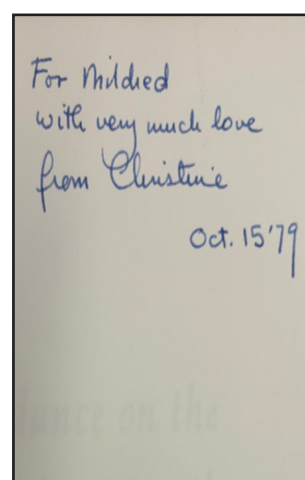 For Mildred
with very much love
from Christine
Oct. 15 '79
dance on the